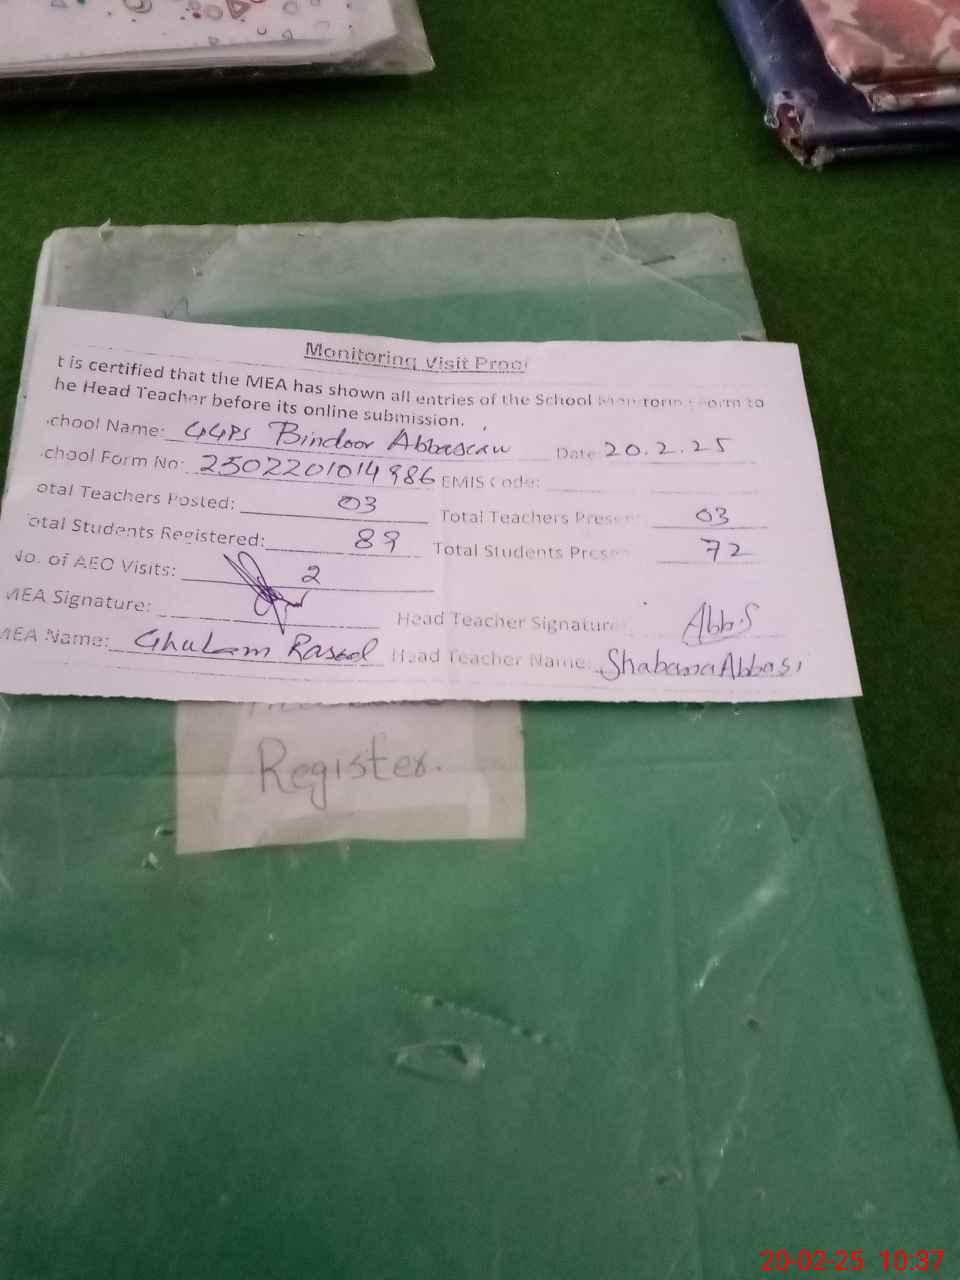 Monitoring Visit Proof
t is certified that the MEA has shown all entries of the School Monitoring Form to
he Head Teacher before its online submission.
chool Name: GGPS Bindoor Abbasian Date: 20.2.25
chool Form No: 2502201014986 EMIS Code:
otal Teachers Posted: 03 Total Teachers Presen: 03
otal Students Registered: 89 Total Students Presen 72
No. of AEO Visits: 2
MEA Signature: Head Teacher Signature: Abbs
MEA Name: Ghulam Rasool Head Teacher Name: Shabana Abbasi
Register.
20-02-25 10:37